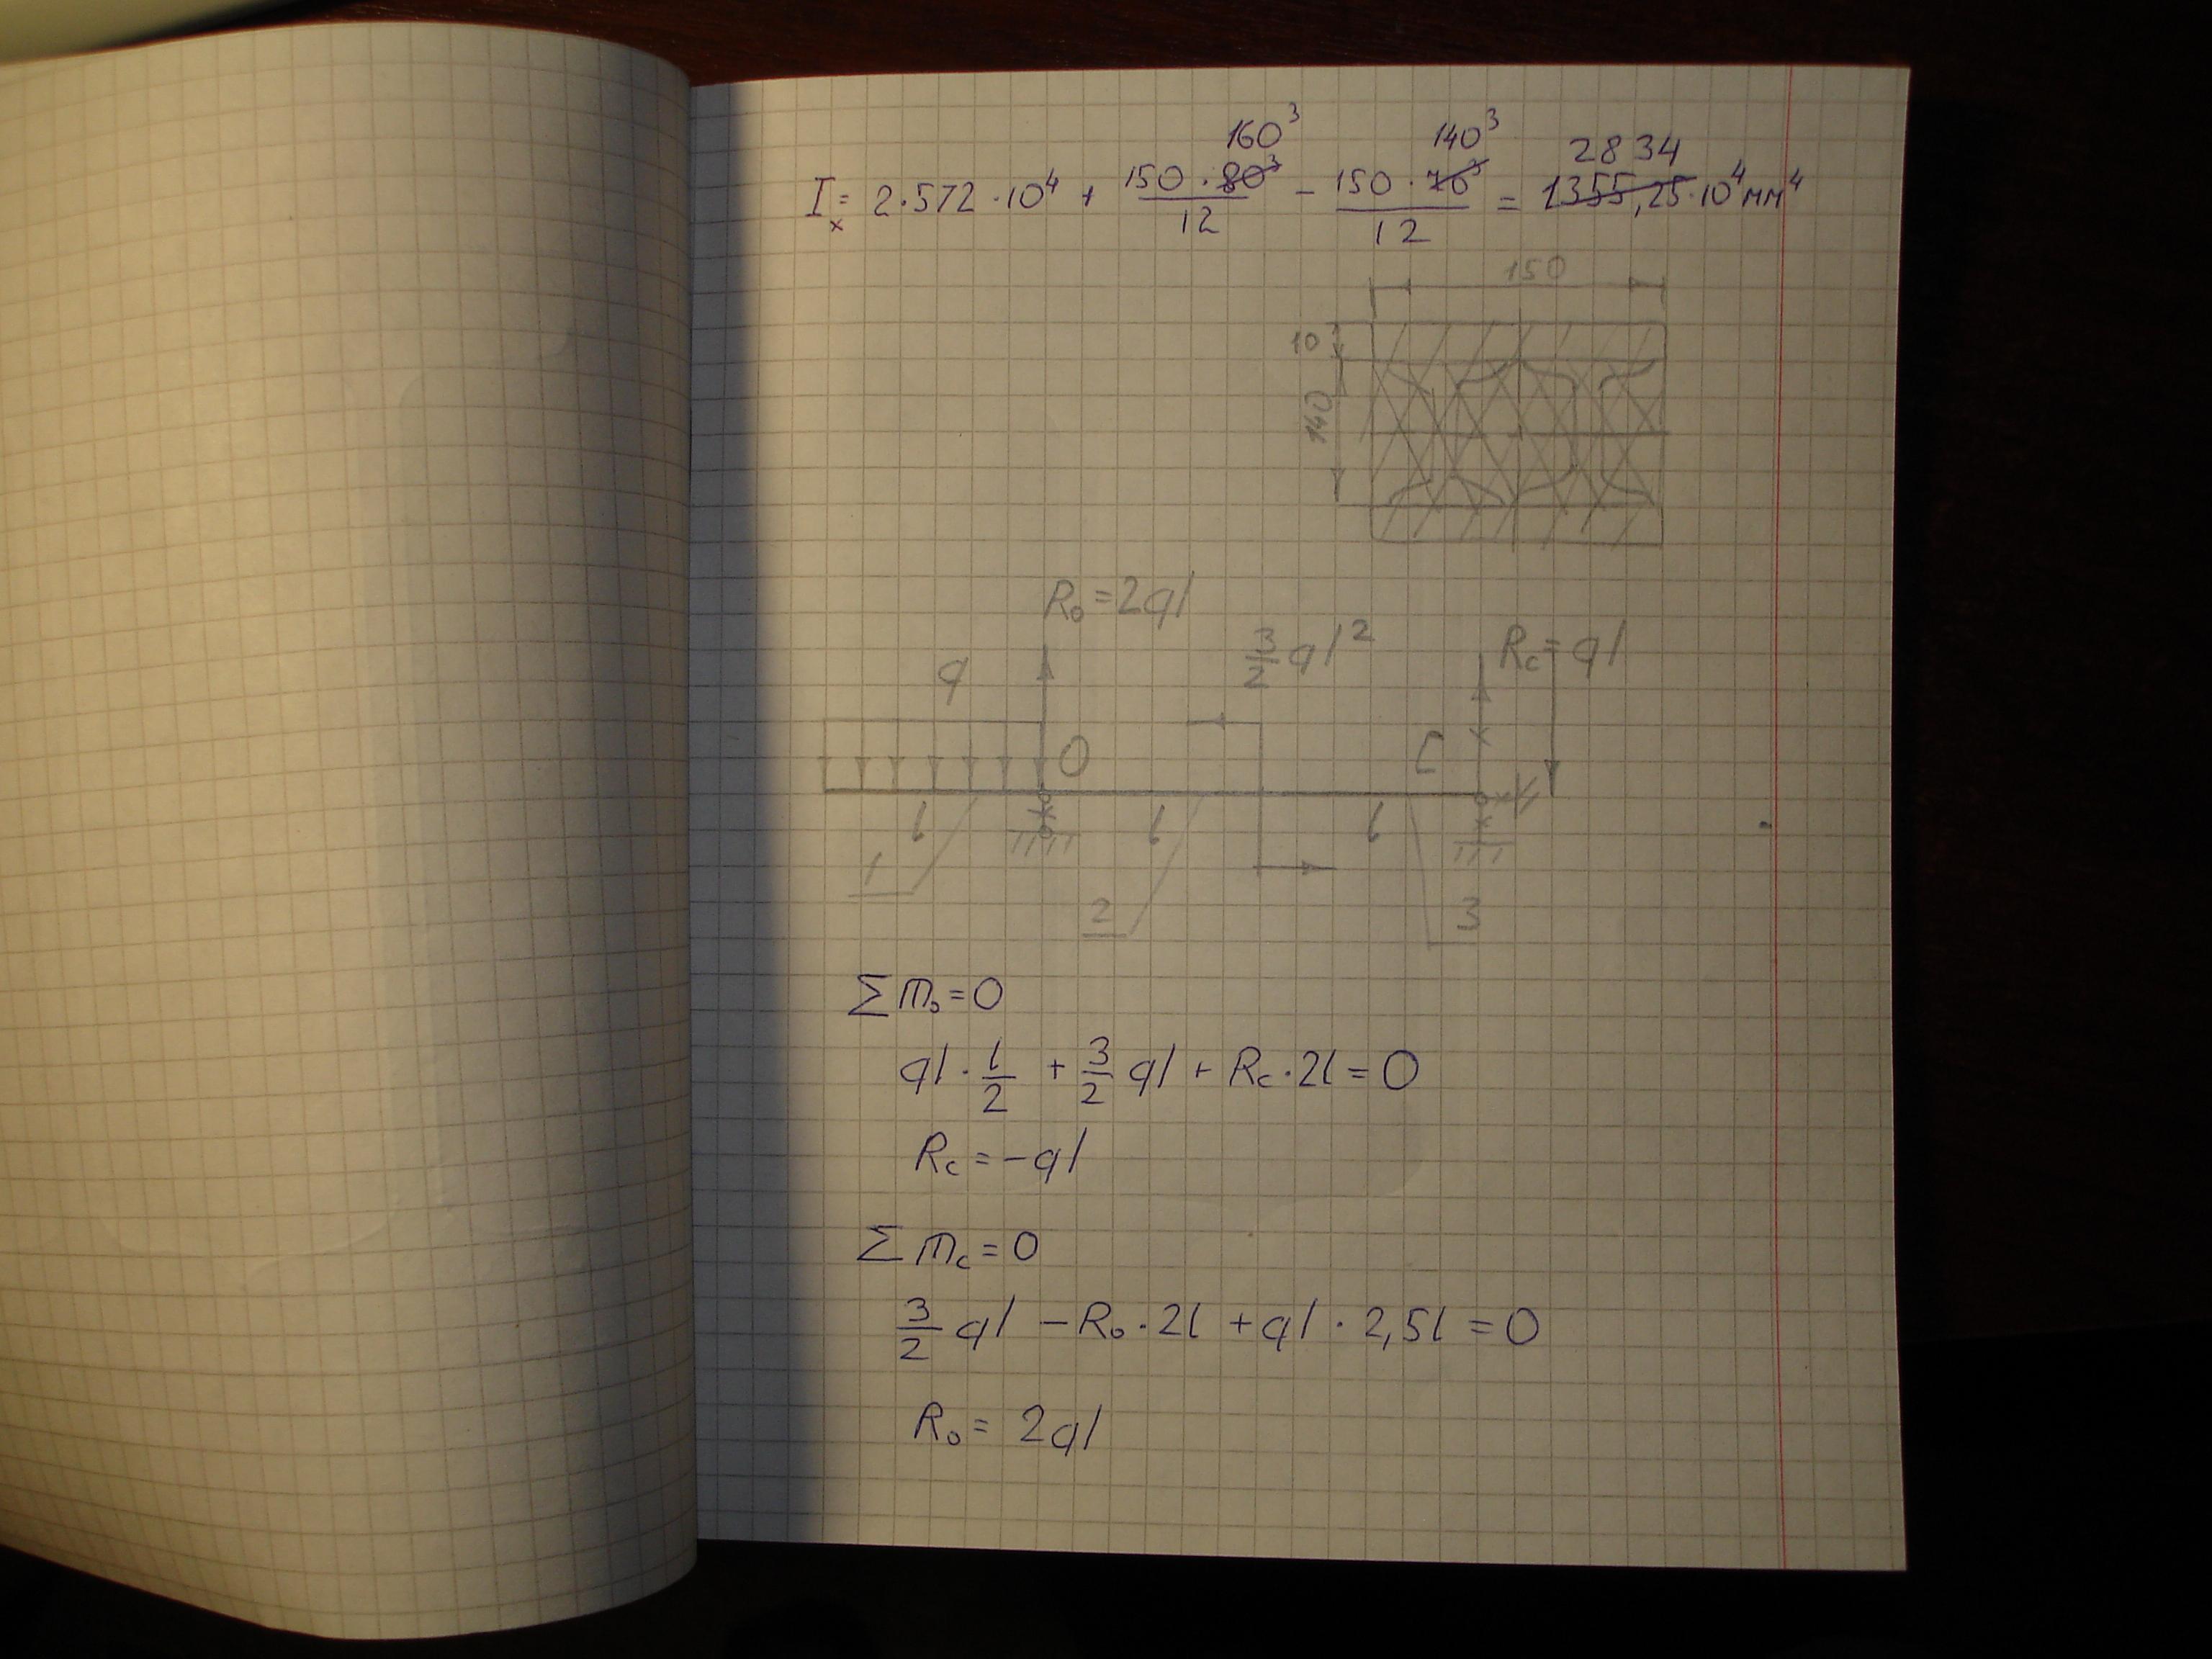 Iₓ = 2·572·10⁴ + 150·80³ 160³ / 12 − 150·70³ 140³ / 12 = 1355,25 2834 ·10⁴ мм⁴
150
10
140
R₀ = 2ql
q
3/2 ql²
Rc = ql
O
C
l
l
l
1
2
3
Σ m₀ = 0
ql · l/2 + 3/2 ql + Rc · 2l = 0
Rc = −ql
Σ mc = 0
3/2 ql − R₀ · 2l + ql · 2,5l = 0
R₀ = 2ql